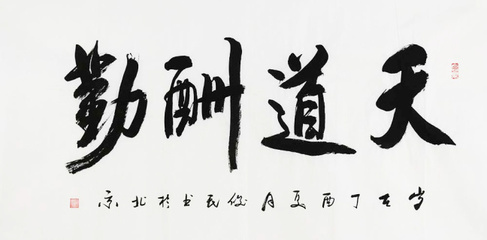 天道酬勤
岁在丁酉夏月俊民书于北京